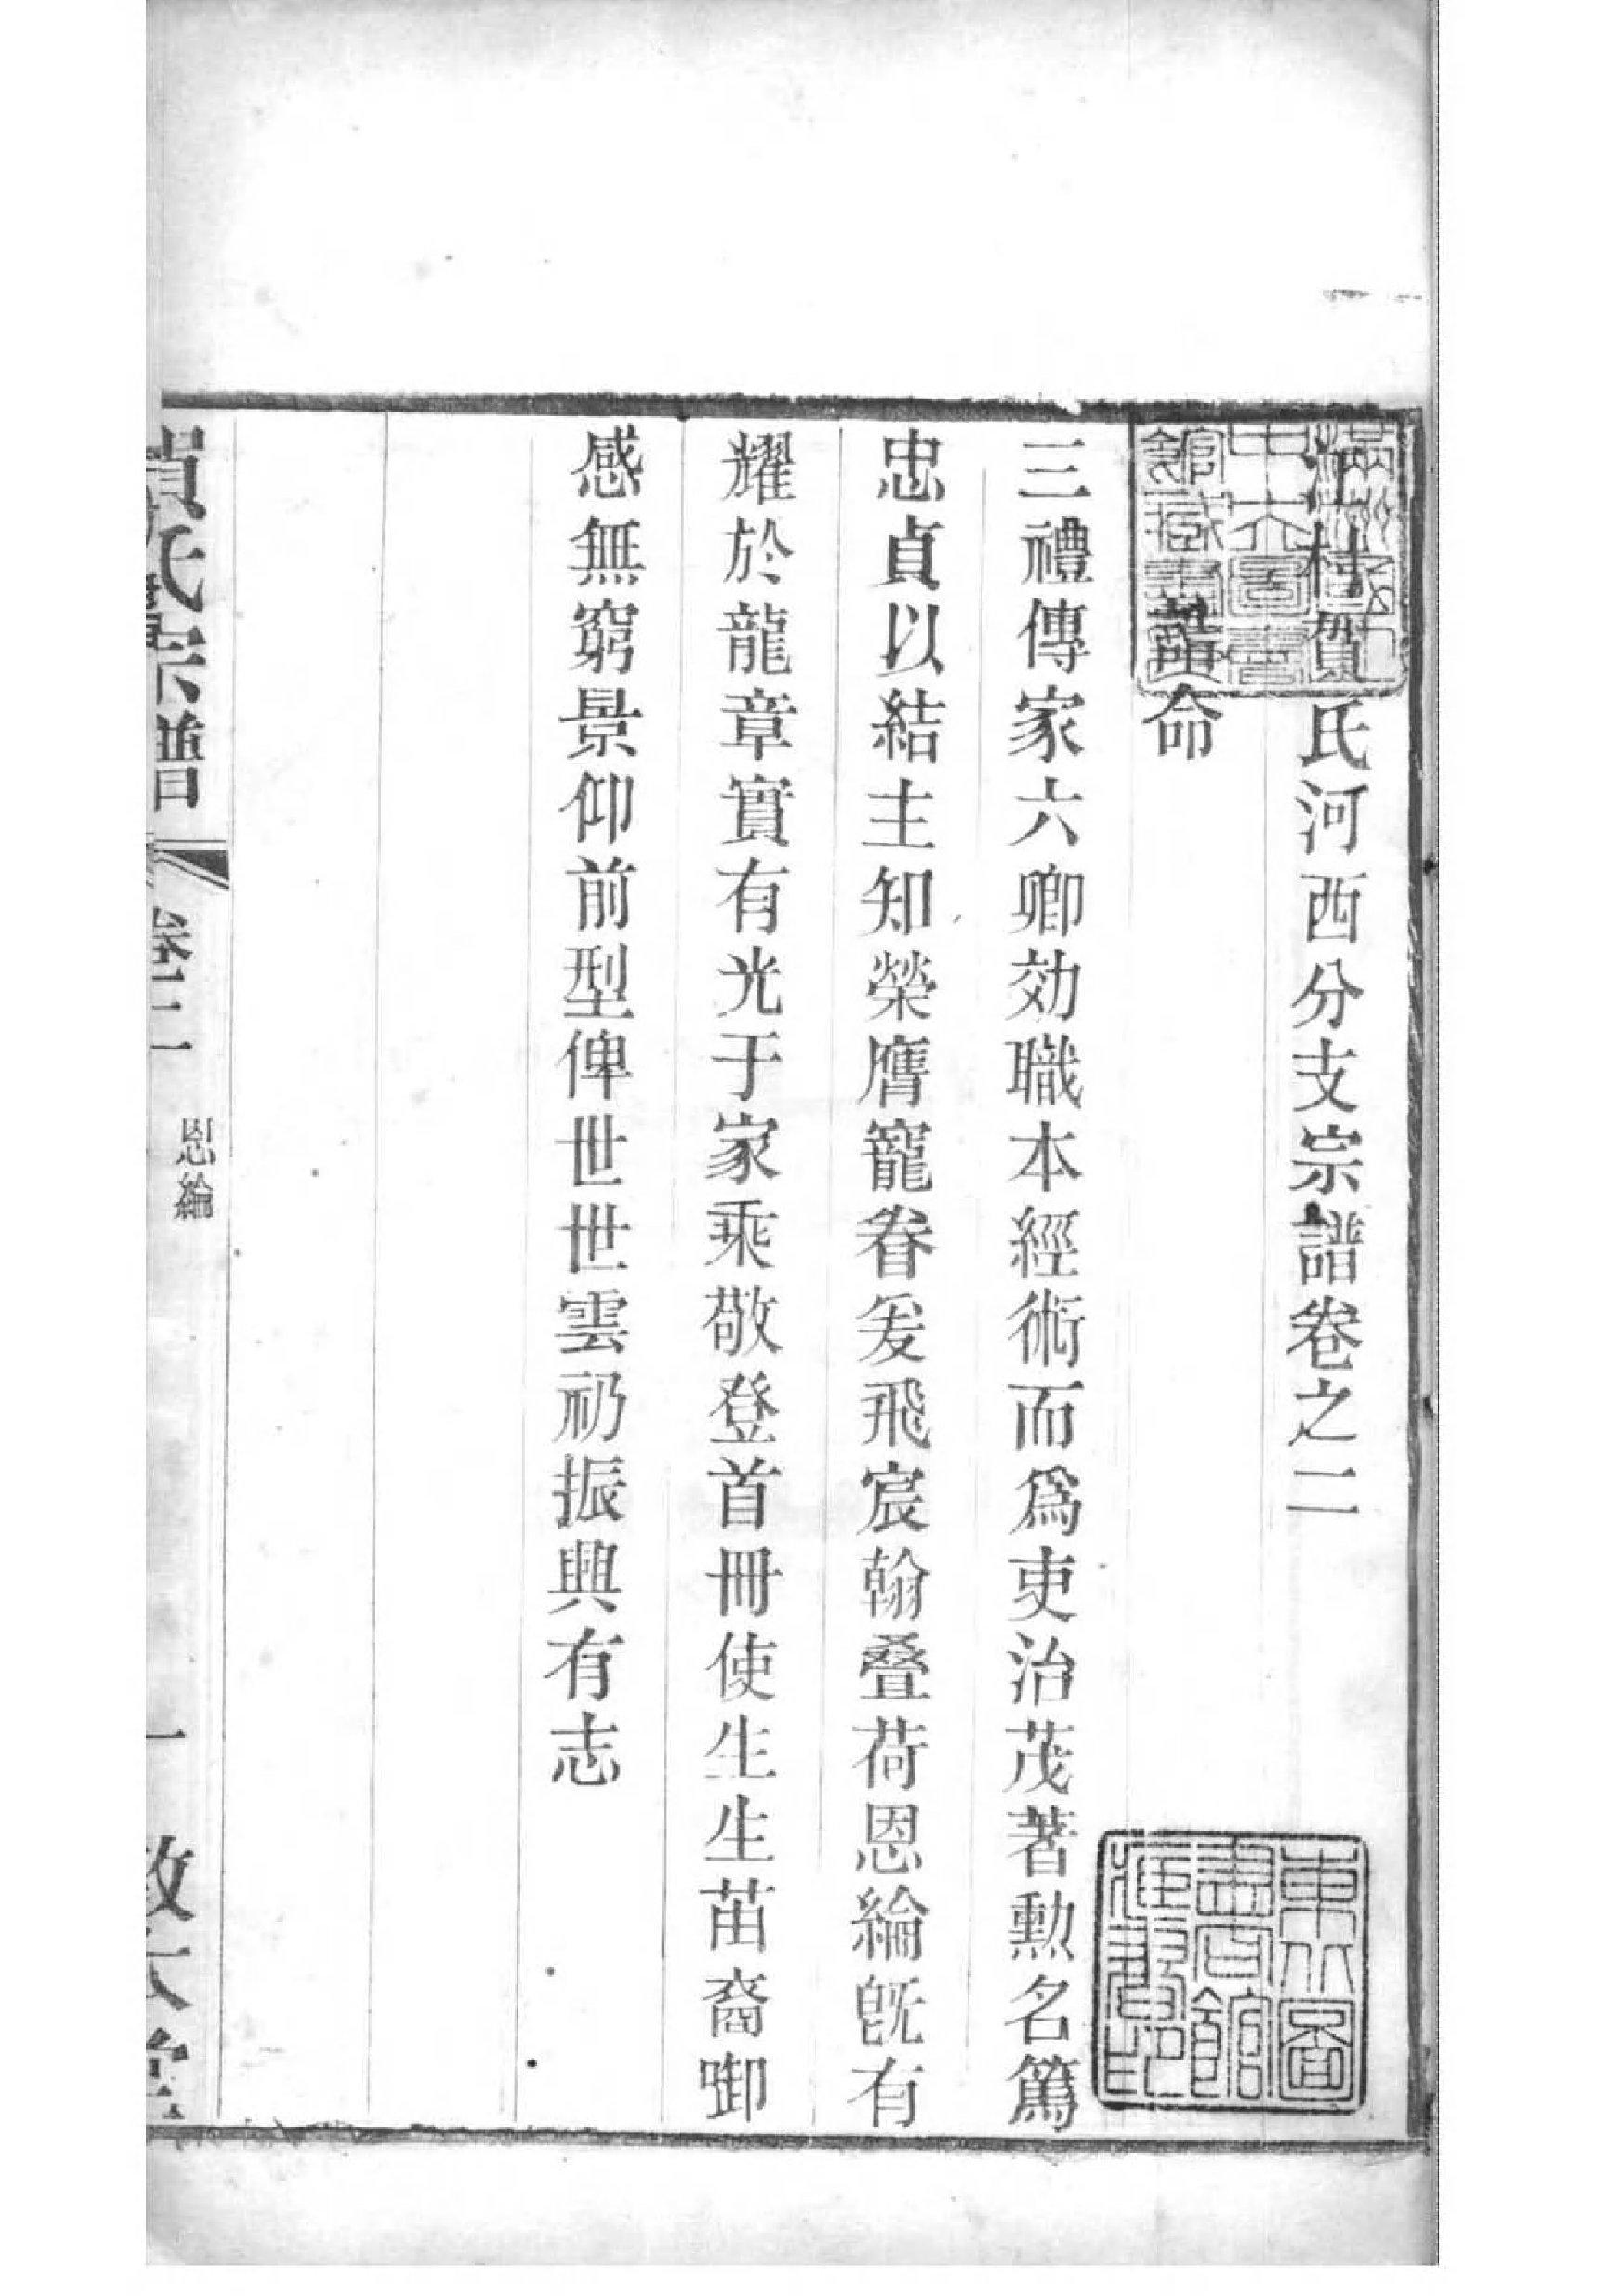 江村賀氏河西分支宗譜卷之二
誥命
三禮傳家六卿効職本經術而爲吏治茂著勲名篤
忠貞以結主知榮膺寵眷爰飛宸翰叠荷恩綸旣有
耀於龍章實有光于家乘敬登首冊使生生苗裔啣
感無窮景仰前型俾世世雲礽振興有志
賀氏宗譜
卷二
恩綸
一
東北圖
書館